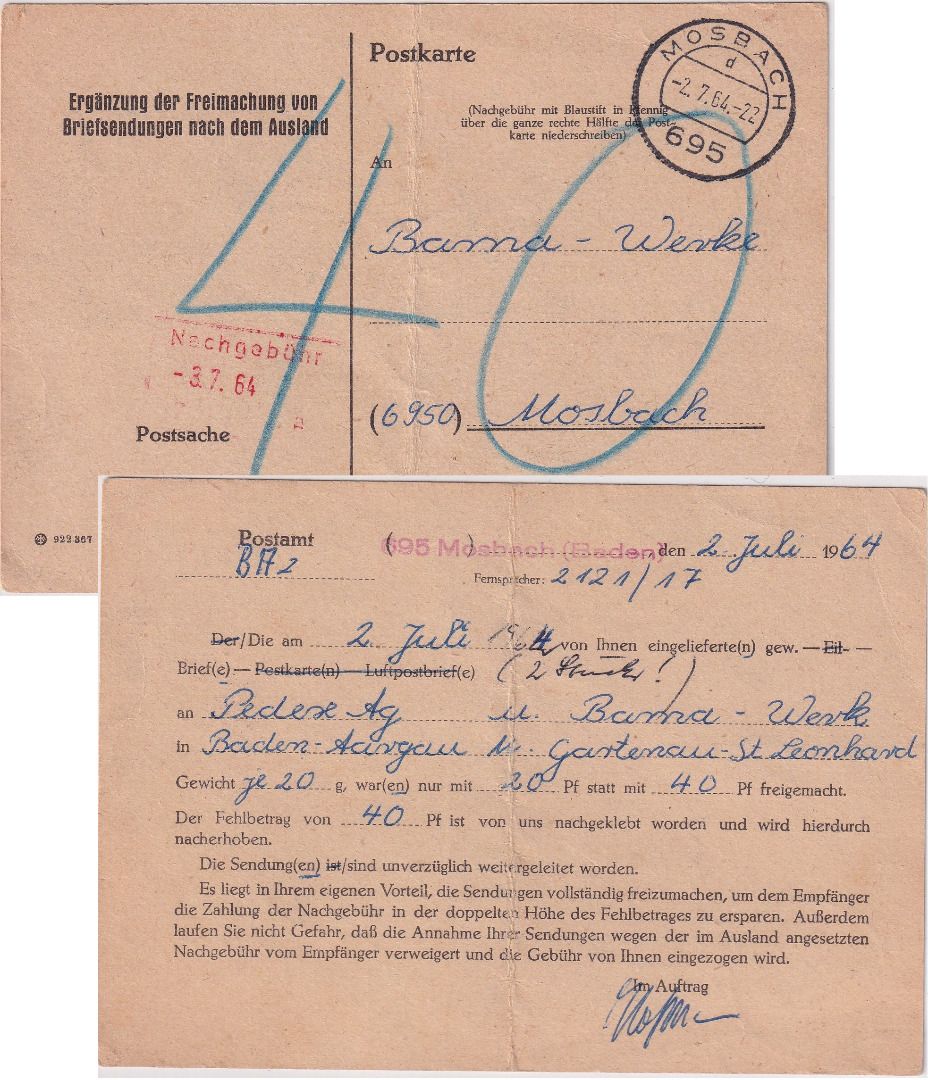 Postkarte
MOSBACH
d
-2.7.64.-22
695
Ergänzung der Freimachung von
Briefsendungen nach dem Ausland
(Nachgebühr mit Blaustift in Pfennig
über die ganze rechte Hälfte der Post-
karte niederschreiben)
An
40
Bama - Werke
Nachgebühr
-3.7.64
a
(6950) Mosbach
Postsache
922 867
Postamt ( ) 695 Mosbach (Baden) den 2. Juli 1964
BA2
Fernsprecher: 2121/17
Der/Die am 2. Juli 1964 von Ihnen eingelieferte(n) gew. — Eil- —
Brief(e) — Postkarte(n) — Luftpostbrief(e) (2 Stück!)
an Pedexe Ag u. Bama - Werk
in Baden-Aargau u. Gartenau-St Leonhard
Gewicht je 20 g, war(en) nur mit 20 Pf statt mit 40 Pf freigemacht.
Der Fehlbetrag von 40 Pf ist von uns nachgeklebt worden und wird hierdurch
nacherhoben.
Die Sendung(en) ist/sind unverzüglich weitergeleitet worden.
Es liegt in Ihrem eigenen Vorteil, die Sendungen vollständig freizumachen, um dem Empfänger
die Zahlung der Nachgebühr in der doppelten Höhe des Fehlbetrages zu ersparen. Außerdem
laufen Sie nicht Gefahr, daß die Annahme Ihrer Sendungen wegen der im Ausland angesetzten
Nachgebühr vom Empfänger verweigert und die Gebühr von Ihnen eingezogen wird.
Im Auftrag